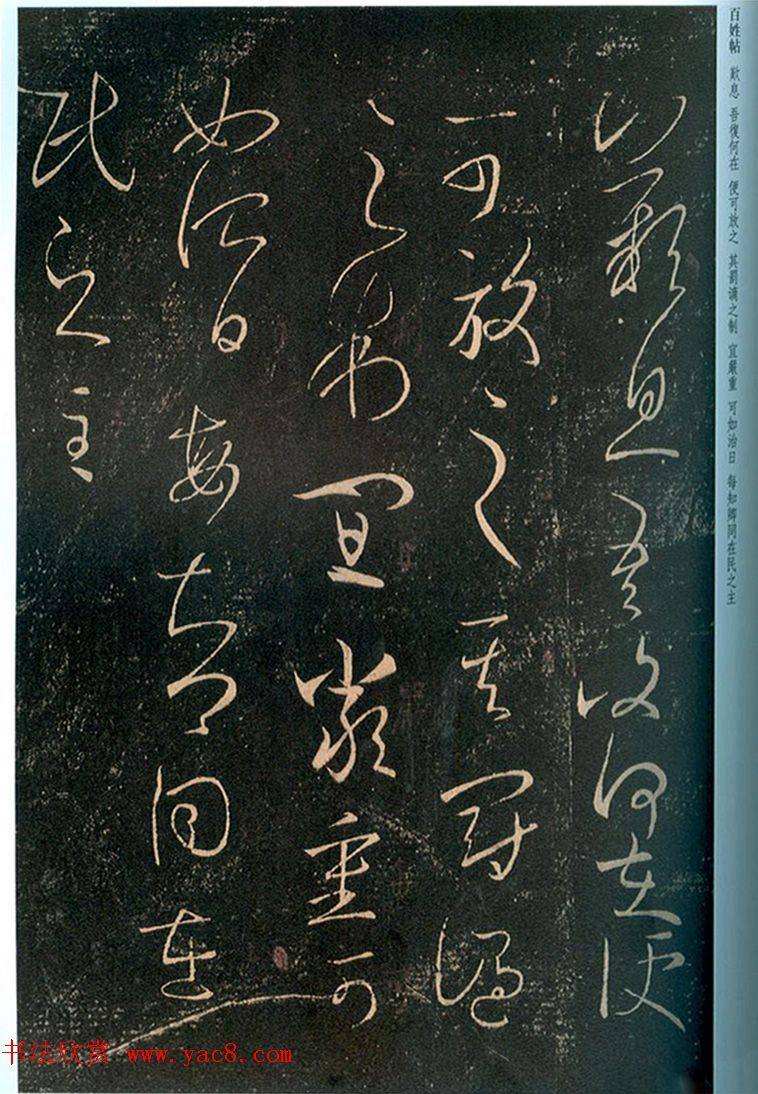 百姓帖 歎息 吾復何在 便可放之 其罰謫之制 宜嚴重 可如治日 每知卿同在民之主
歎息吾復何在便
可放之其罰謫
之制宜嚴重可
如治日每知卿同在
民之主
书法欣赏 www.yac8.com